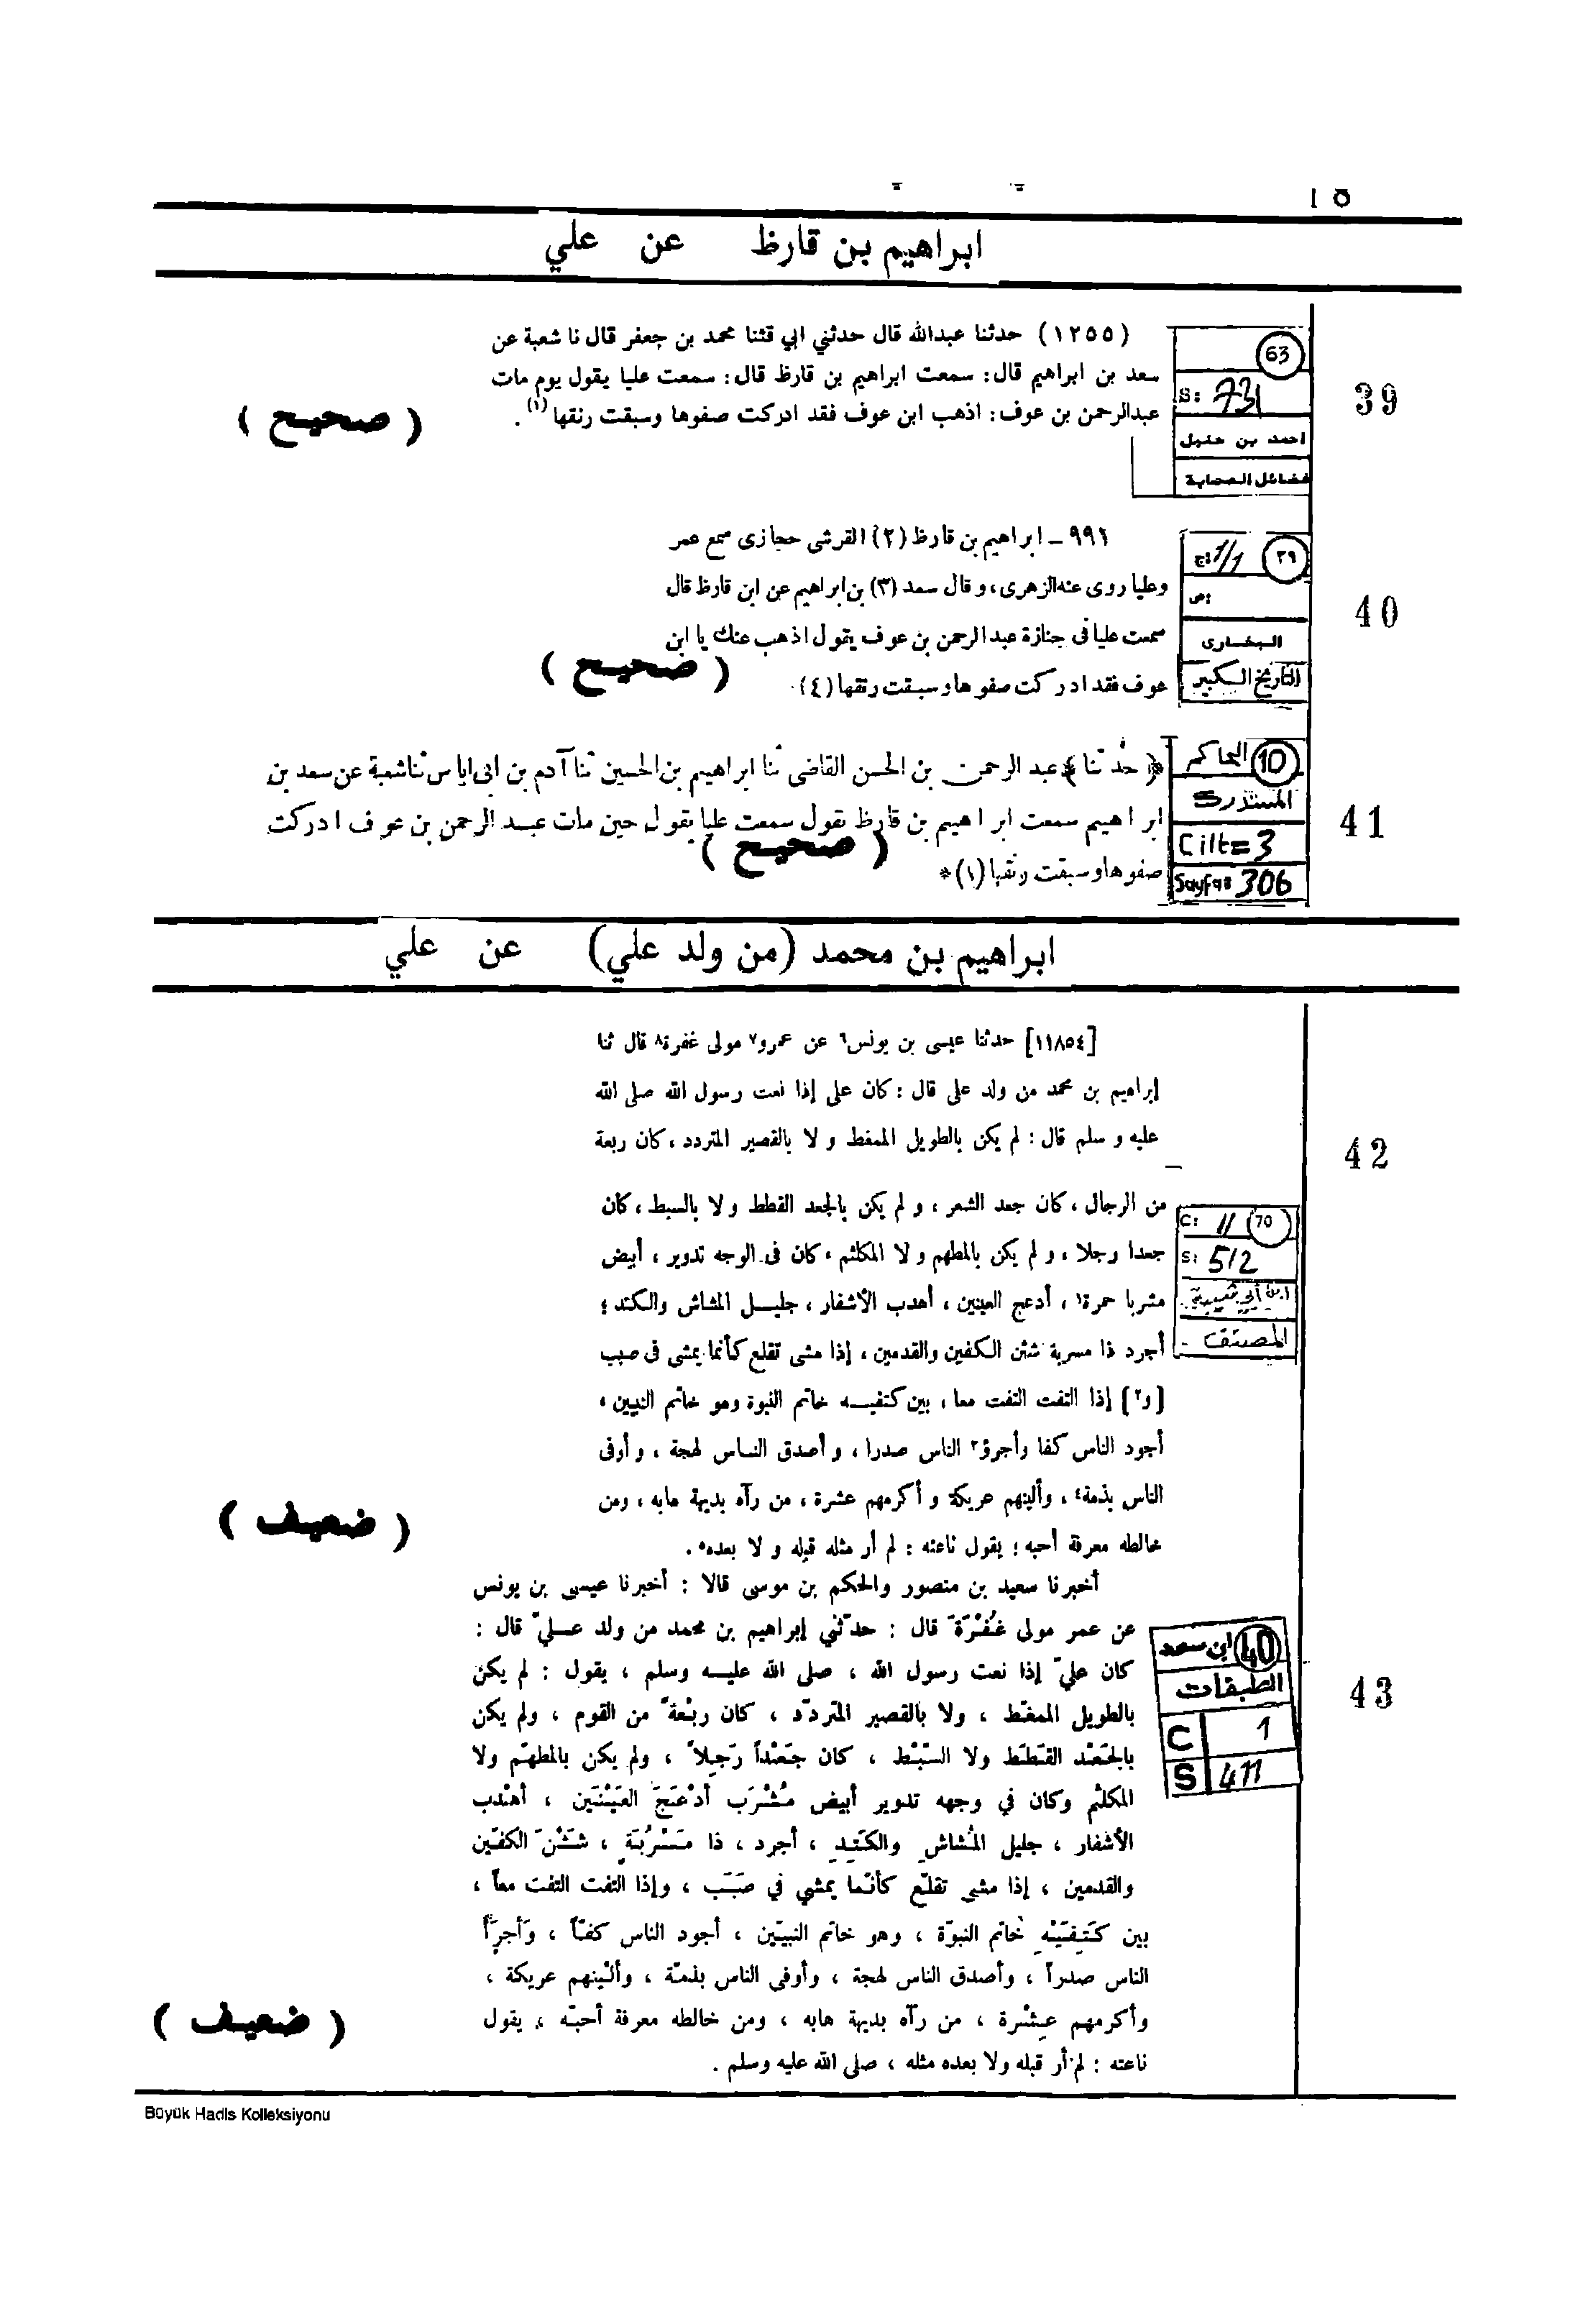 ١٥
ابراهيم بن قارظ عن علي
39
63
S: 731
احمد بن حنبل
فضائل الصحابة
(١٢٥٥) حدثنا عبدالله قال حدثني ابي قثنا محمد بن جعفر قال نا شعبة عن
سعد بن ابراهيم قال: سمعت ابراهيم بن قارظ قال: سمعت عليا يقول يوم مات
عبدالرحمن بن عوف: اذهب ابن عوف فقد ادركت صفوها وسبقت رنقها (١).
( صحيح )
40
٣٩
ج: 1/1
ص:
البخارى
التاريخ الكبير
٩٩١ - ابراهيم بن قارظ (٢) القرشى حجازى سمع عمر
وعليا روى عنه الزهرى، وقال سعد (٣) بن ابراهيم عن ابن قارظ قال
سمعت عليا فى جنازة عبد الرحمن بن عوف يقول اذهب عنك يا ابن
عوف فقد ادركت صفوها وسبقت رنقها (٤).
( صحيح )
41
10 الحاكم
المستدرك
Cilt= 3
Sayfa: 306
﴿ حدثنا ﴾ عبد الرحمن بن الحسن القاضى ثنا ابراهيم بن الحسين ثنا آدم بن ابى اياس ثنا شعبة عن سعد بن
ابراهيم سمعت ابراهيم بن قارظ يقول سمعت عليا يقول حين مات عبد الرحمن بن عوف ادركت
صفوها وسبقت رنقها (١)*
( صحيح )
ابراهيم بن محمد (من ولد علي) عن علي
42
[١١٨٥٤] حدثنا عيسى بن يونس٦ عن عمرو٧ مولى غفرة٨ قال ثنا
إبراهيم بن محمد من ولد على قال : كان على إذا نعت رسول الله صلى الله
عليه و سلم قال : لم يكن بالطويل الممغط و لا بالقصير المتردد ، كان ربعة
من الرجال ، كان جعد الشعر ، و لم يكن بالجعد القطط و لا بالسبط ، كان
جعدا رجلا ، و لم يكن بالمطهم و لا المكلثم ، كان فى الوجه تدوير ، أبيض
مشربا حمرة١ ، أدعج العينين ، أهدب الأشفار ، جليل المشاش والكتد ؛
أجرد ذا مسربة شثن الكفين والقدمين ، إذا مشى تقلع كأنما يمشى فى صبب
[ و٢ ] إذا التفت التفت معا ، بين كتفيه خاتم النبوة وهو خاتم النبيين ،
أجود الناس كفا وأجرؤ٣ الناس صدرا ، و أصدق الناس لهجة ، و أوفى
الناس بذمة٤ ، وألينهم عريكة و أكرمهم عشرة ، من رآه بديهة هابه ، ومن
خالطه معرفة أحبه ؛ يقول ناعته : لم أر مثله قبله و لا بعده٥ .
C: 11 70
S: 512
ابن أبي شيبة
المصنف
( ضعيف )
43
40 ابن سعد
الطبقات
C 1
S 411
أخبرنا سعيد بن منصور والحكم بن موسى قالا : أخبرنا عيسى بن يونس
عن عمر مولى غُفْرَةَ قال : حدّثني إبراهيم بن محمد من ولد عليّ قال :
كان عليّ إذا نعت رسول الله ، صلى الله عليه وسلم ، يقول : لم يكن
بالطويل الممغّط ، ولا بالقصير المتردّد ، كان رَبْعَةً من القوم ، ولم يكن
بالجَعْد القَطَط ولا السَّبْط ، كان جَعْداً رَجِلاً ، ولم يكن بالمطهّم ولا
المكلثم وكان في وجهه تدوير أبيض مُشْرَب أدْعَجَ العَيْنَين ، أهْدب
الأشفار ، جليل المُشاش والكَتِد ، أجرد ، ذا مَسْرُبَة ، شَثْنَ الكفّين
والقدمين ، إذا مشى تقلّع كأنّما يمشي في صَبَب ، وإذا التفت التفت معاً ،
بين كَتِفَيْه خاتم النبوّة ، وهو خاتم النبيّين ، أجود الناس كفّاً ، وَأجرَأ
الناس صدراً ، وأصدق الناس لهجة ، وأوفى الناس بذمّة ، وألْينهم عريكة ،
وأكرمهم عِشْرة ، من رآه بديهة هابه ، ومن خالطه معرفة أحبّه ، يقول
ناعته : لم أر قبله ولا بعده مثله ، صلى الله عليه وسلم .
( ضعيف )
Büyük Hadis Kolleksiyonu